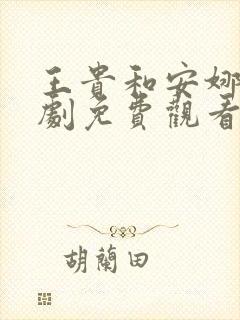 王貴和安娜
劇免費觀看
胡蘭田